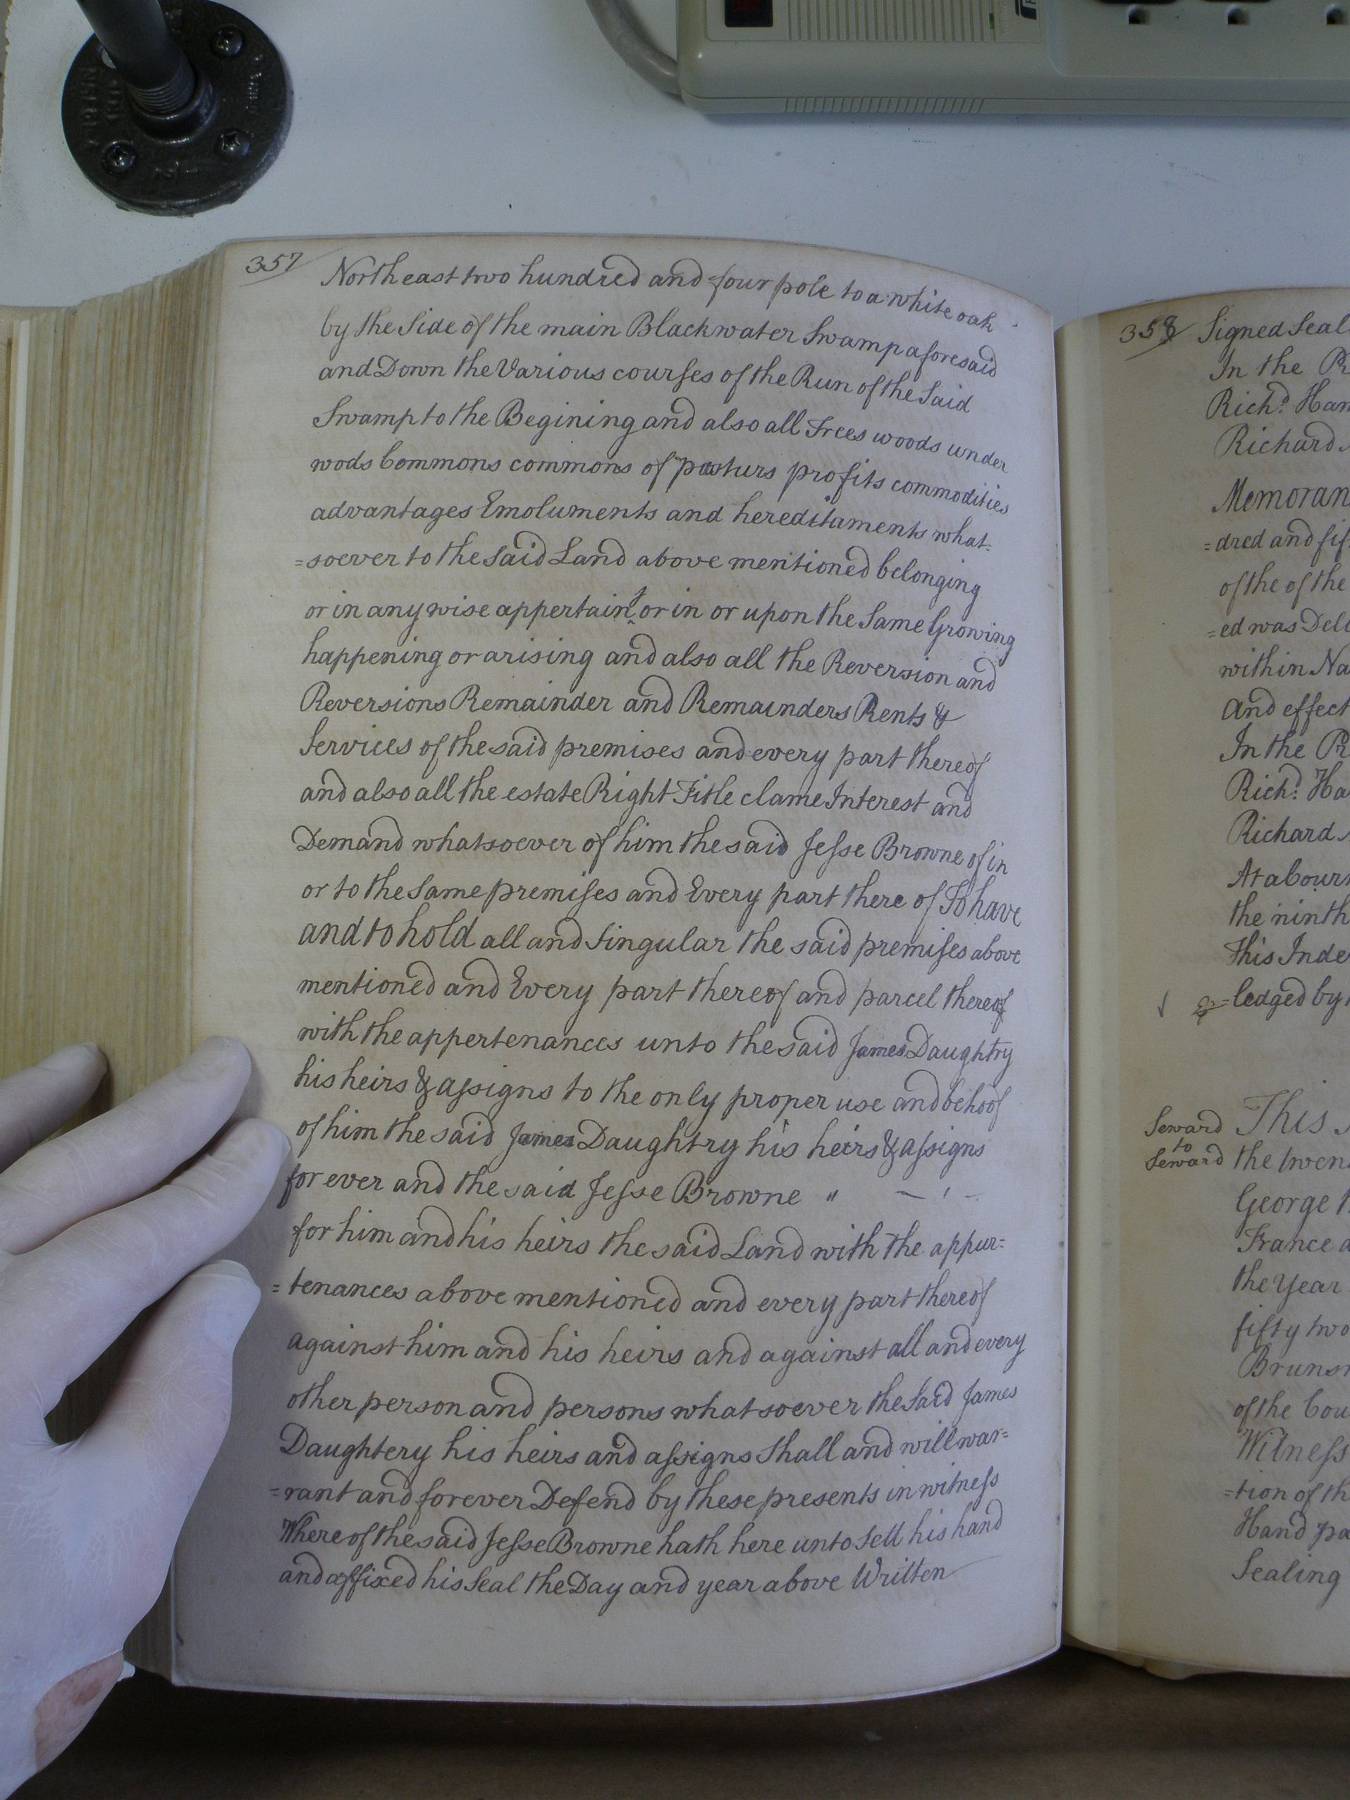 357
Northeast two hundred and four pole to a white oak
by the Side of the main Blackwater Swamp aforesaid
and Down the Various courses of the Run of the Said
Swamp to the Begining and also all Trees woods under
wods Commons commons of pasturs profits commodities
advantages Emoluments and hereditaments what-
=soever to the Said Land above mentioned belonging
or in any wise appertain or in or upon the Same Growing
happening or arising and also all the Reversion and
Reversions Remainder and Remainders Rents &
Services of the said premises and every part thereof
and also all the estate Right Title clame Interest and
Demand whatsoever of him the said Jesse Browne of in
or to the Same premises and Every part there of To have
and to hold all and Singular the said premises above
mentioned and Every part thereof and parcel thereof
with the appertenances unto the said James Daughtry
his heirs & assigns to the only proper use and behoof
of him the said James Daughtry his heirs & assigns
for ever and the said Jesse Browne "
for him and his heirs the said Land with the appur=
=tenances above mentioned and every part thereof
against him and his heirs and against all and every
other person and persons whatsoever the Said James
Daughtery his heirs and assigns Shall and will war=
=rant and forever Defend by these presents in witness
Where of the said Jesse Browne hath here unto Sett his hand
and affixed his Seal the Day and year above Written
358
Signed Seal
In the
Rich.d Har
Richard
Memoran
=dred and fif
of the of the
=ed was Del
within Na
and effect
In the
Rich.d Ha
Richard
At a Cour
the ninth
This Inde
=ledged by
Seward
to
Seward
This
the twen
George
France a
the Year
fifty two
Brunsw
of the Cou
Witness
=tion of th
Hand pa
Sealing